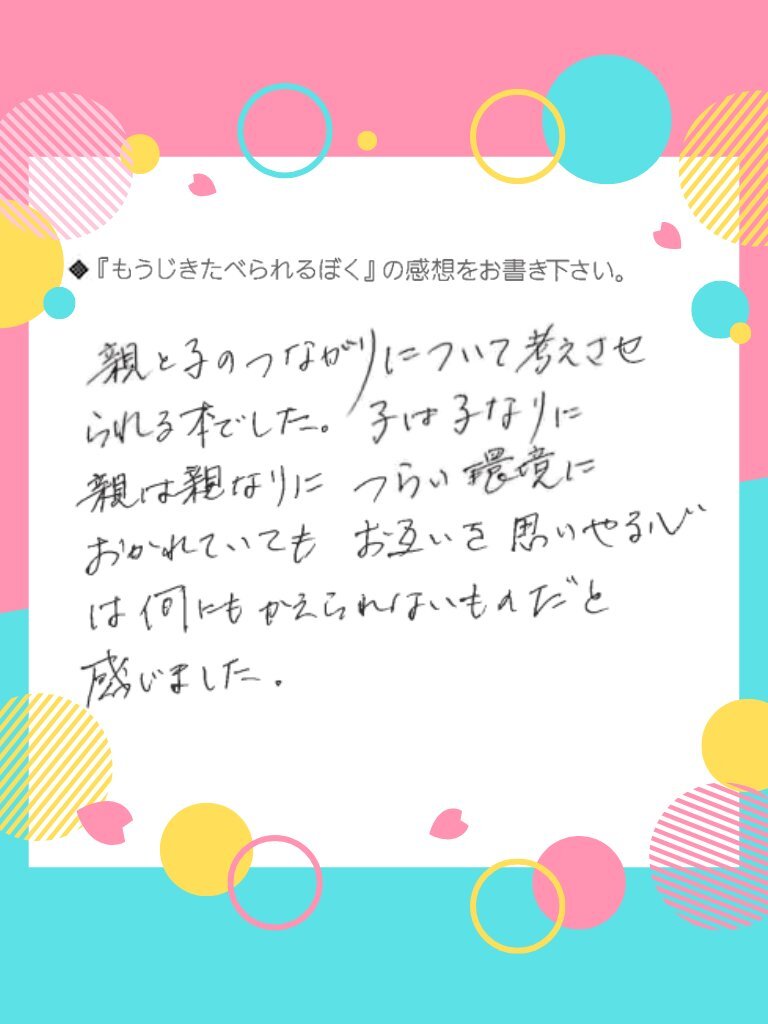 ◆『もうじきたべられるぼく』の感想をお書き下さい。
親と子のつながりについて考えさせ
られる本でした。子は子なりに
親は親なりに つらい環境に
おかれていても お互いを思いやる心
は何にもかえられないものだと
感じました。